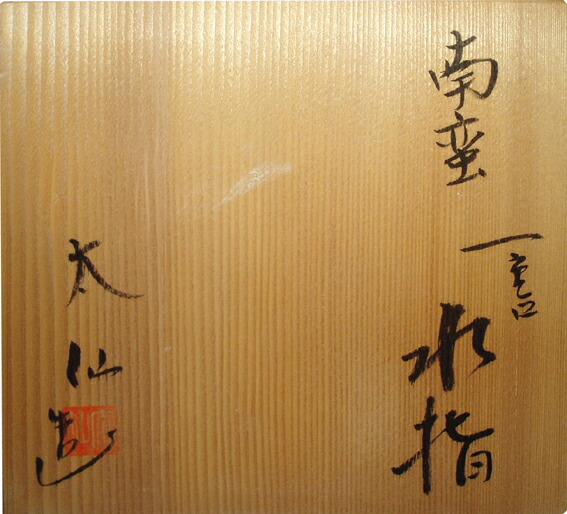 南蛮
一言
水指
太仙造